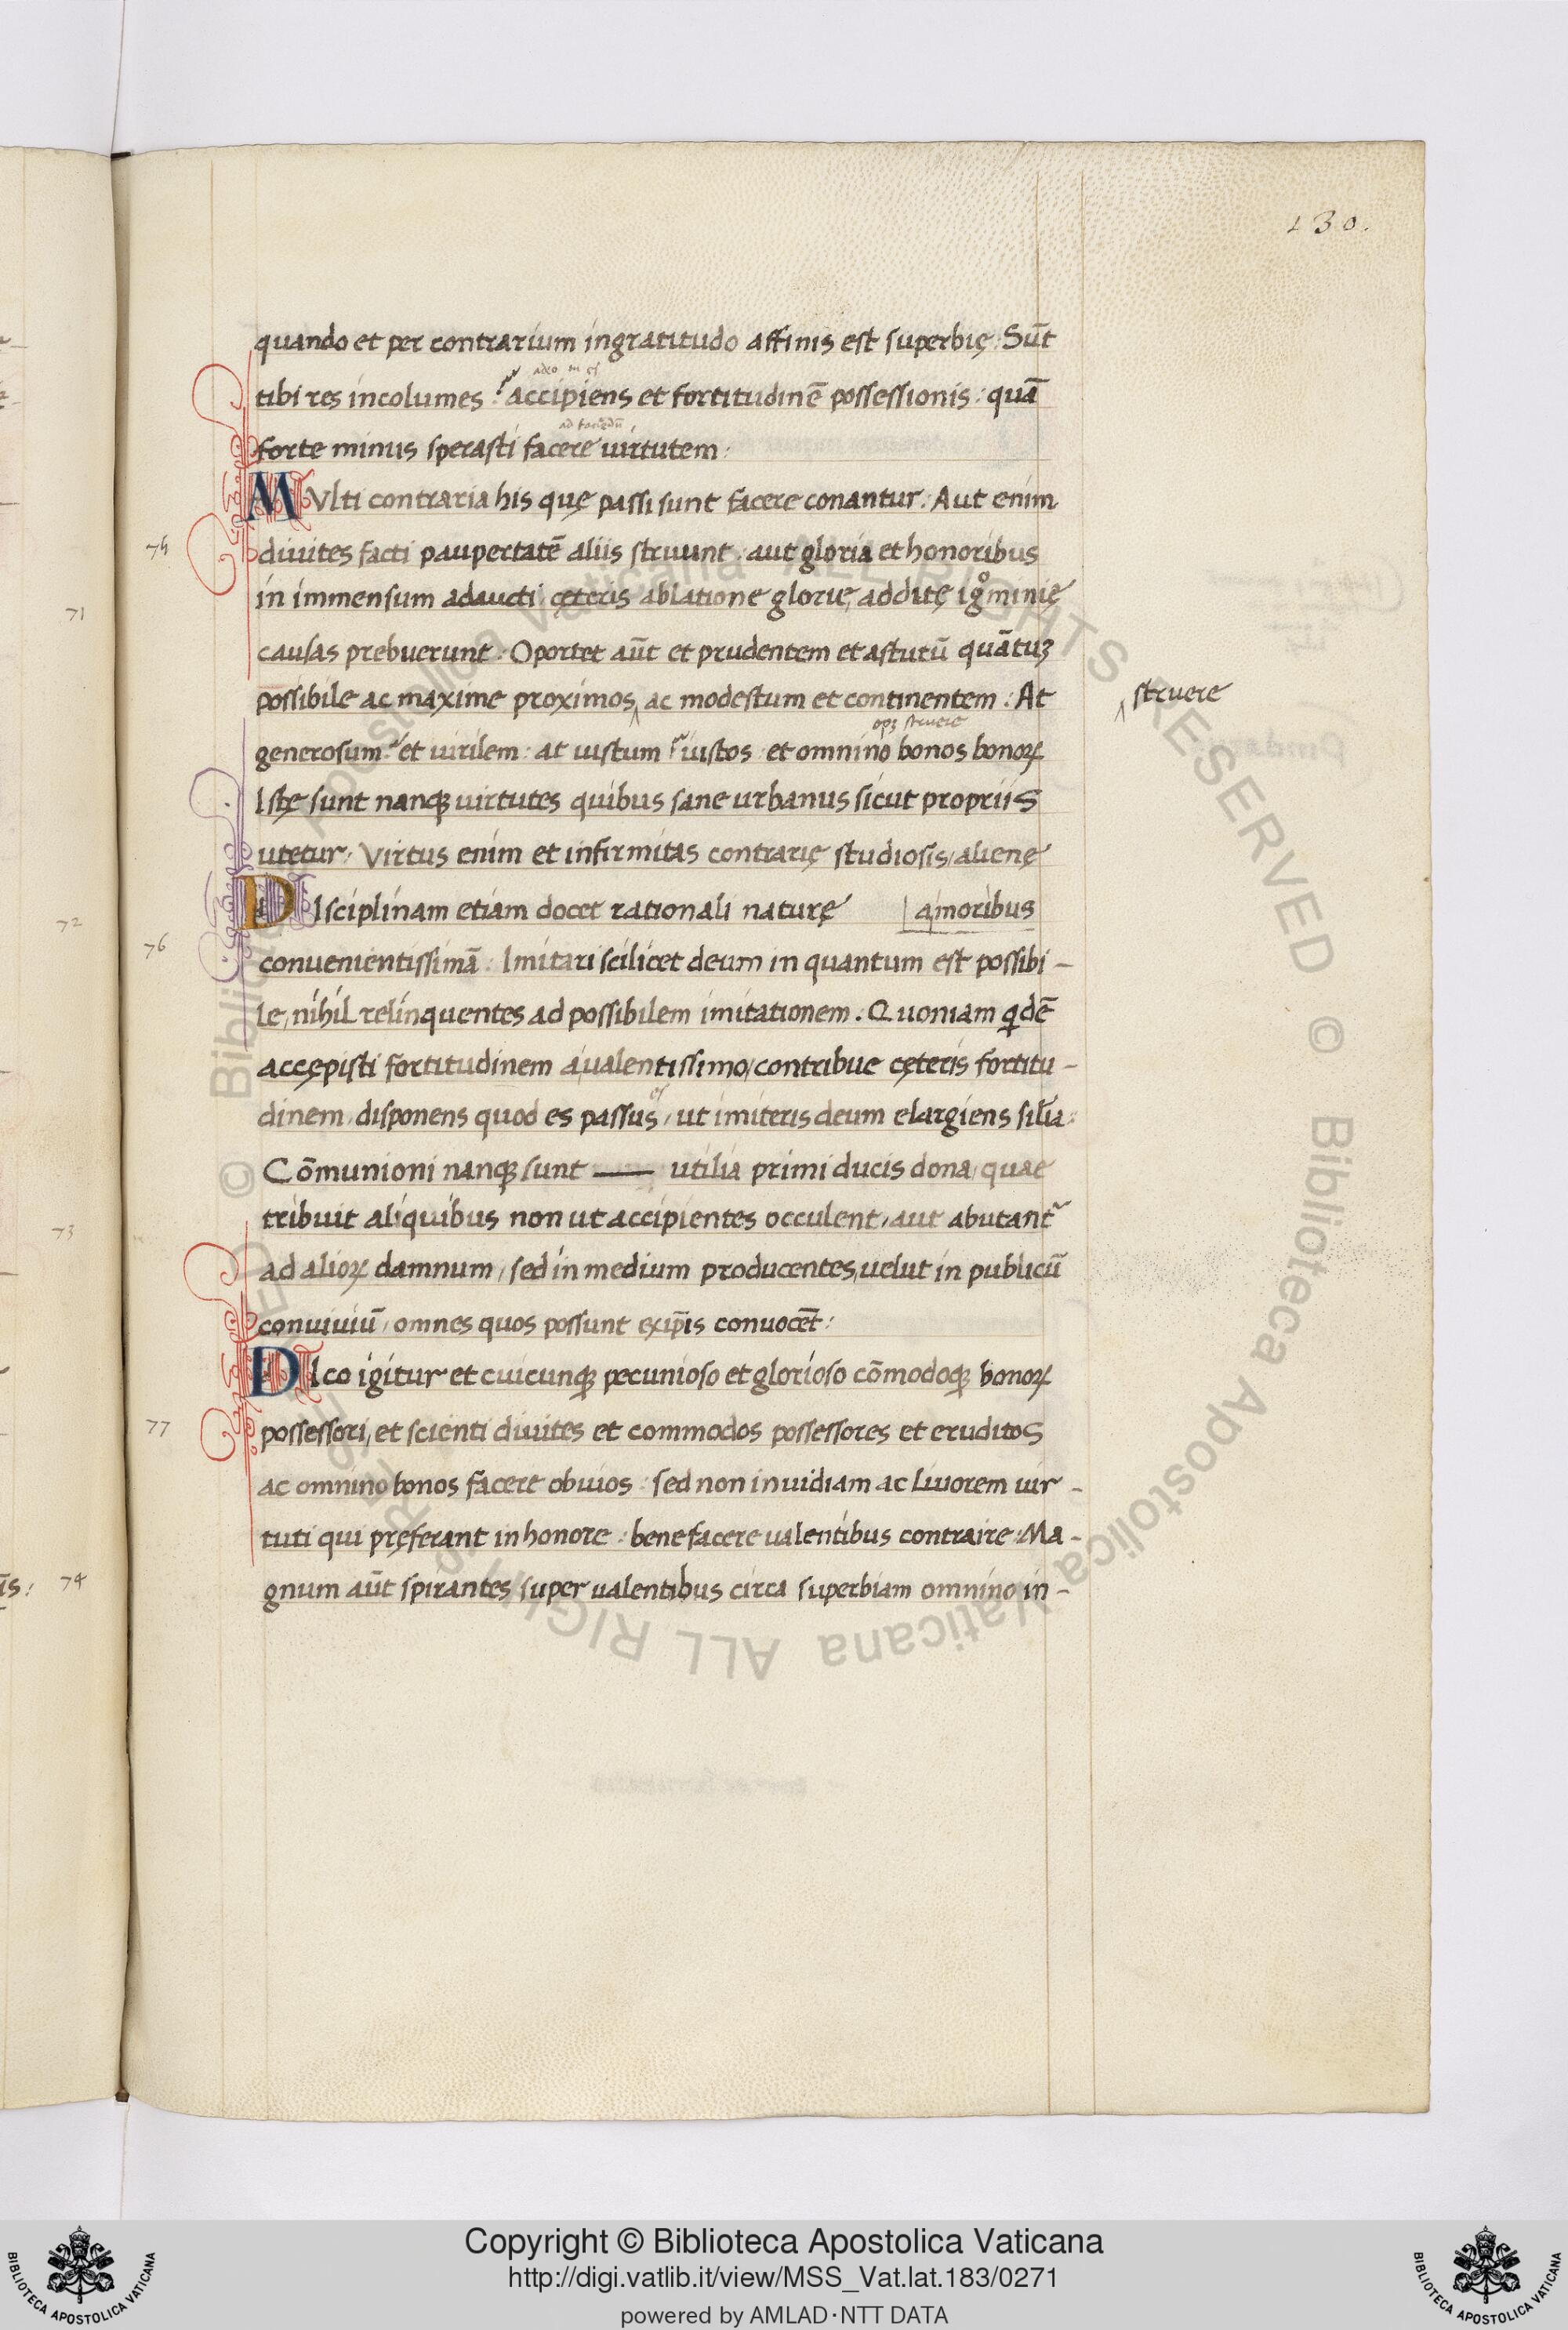 130.
quando et per contrarium ingratitudo affinis est superbię: Sūt
tibi res incolumes: accipiens et fortitudinē possessionis: quā
forte minus sperasti facere uirtutem:
MVlti contraria his quę passi sunt facere conantur: Aut enim
75
diuites facti paupertatē aliis struunt: aut gloria et honoribus
71
in immensum adaucti, cęteris ablatione glorię, additę igominię
causas prebuerunt: Oportet aūt et prudentem et astutū quātuꝫ
possibile ac maxime proximos ‸ ac modestum et continentem: At
‸ struere
opꝫ struere
generosum et uirilem: at iustum iustos: et omnino bonos bonoꝝ
Istę sunt nanqꝫ uirtutes quibus sane urbanus sicut propriis
utetur: Virtus enim et infirmitas contrarię studiosis, alienę
72
DIsciplinam etiam docet rationali naturę | a moribus
76
conuenientissimā: Imitari scilicet deum in quantum est possibi-
le, nihil relinquentes ad possibilem imitationem. Quoniam qdē
accępisti fortitudinem a ualentissimo, contribue cęteris fortitu-
dinem, disponens quod es passus, ut imiteris deum elargiens sil̄ia:
Cōmunioni nanqꝫ sunt —— utilia primi ducis dona, quae
73
tribuit aliquibus non ut accipientes occulent, aut abutant᷑
ad alioꝝ damnum, sed in medium producentes, uelut in publicū
conuiuiū, omnes quos possunt exip̄is conuocēt:
DIco igitur et cuicunqꝫ pecunioso et glorioso cōmodoqꝫ bonoꝝ
77
possessori, et scienti diuites et commodos possessores et eruditos
ac omnino bonos facere obuios: sed non inuidiam ac liuorem uir-
tuti qui pręferant in honore: benefacere ualentibus contraire: Ma-
74
gnum aūt spirantes super ualentibus circa superbiam omnino in-
© Biblioteca Apostolica Vaticana ALL RIGHTS RESERVED © Biblioteca Apostolica Vaticana ALL RIGHTS RESERVED
BIBLIOTECA APOSTOLICA VATICANA
Copyright © Biblioteca Apostolica Vaticana
http://digi.vatlib.it/view/MSS_Vat.lat.183/0271
powered by AMLAD·NTT DATA
BIBLIOTECA APOSTOLICA VATICANA